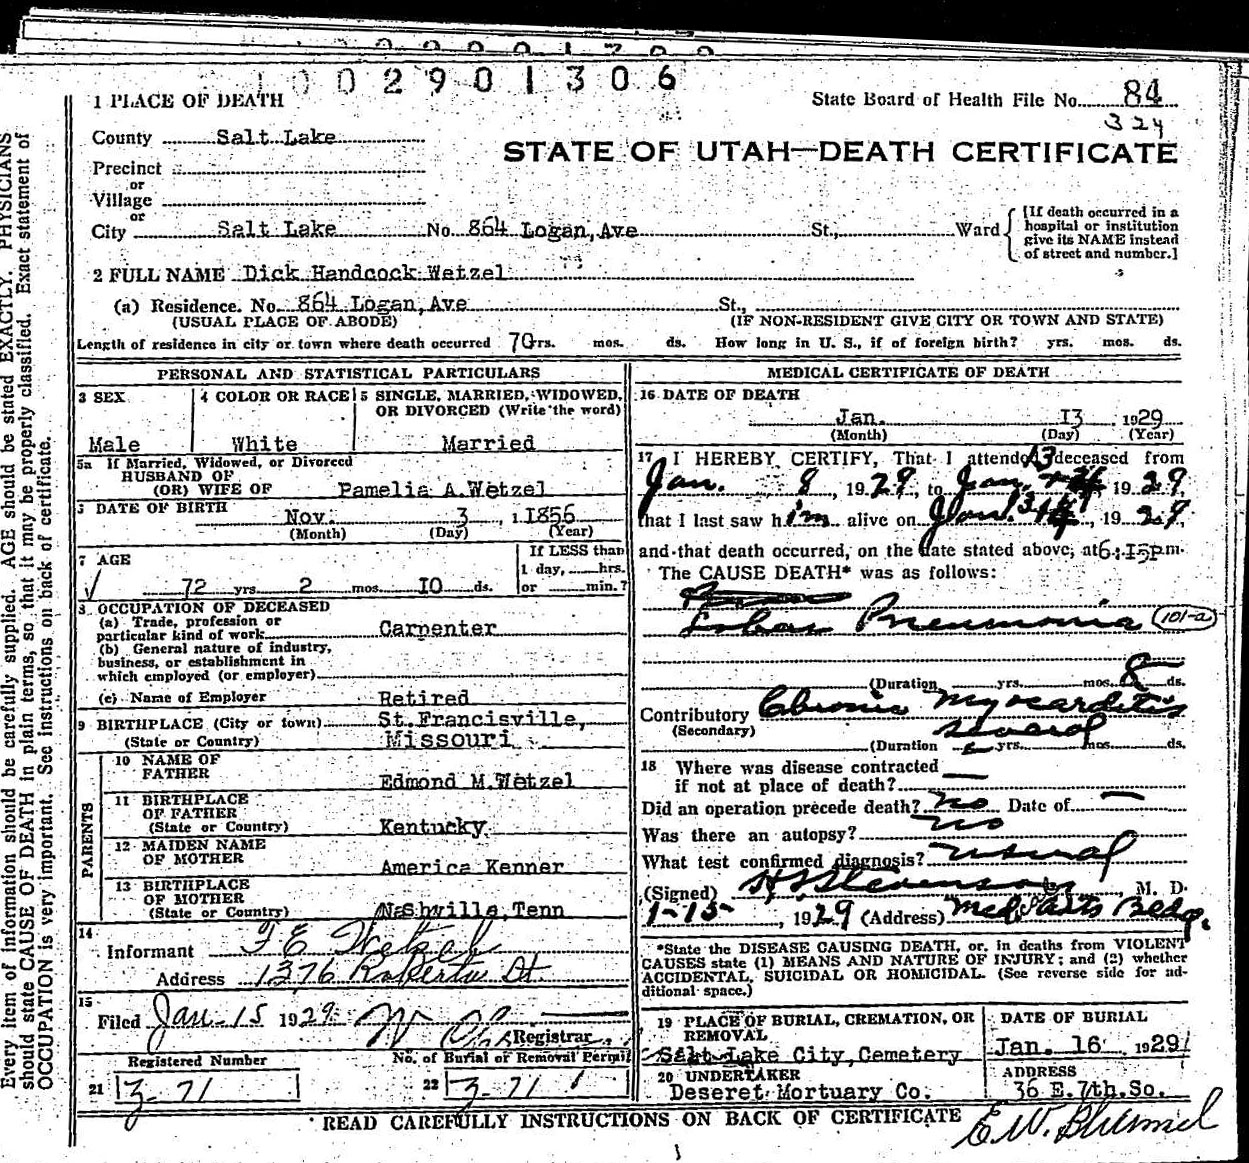 0 0 2 9 0 1 3 0 6
1 PLACE OF DEATH
State Board of Health File No. 84
324
County Salt Lake
STATE OF UTAH—DEATH CERTIFICATE
Precinct
or
Village
or
City Salt Lake No. 864 Logan, Ave St., Ward
[If death occurred in a hospital or institution give its NAME instead of street and number.]
2 FULL NAME Dick Handcock Wetzel
(a) Residence. No. 864 Logan, Ave St.,
(USUAL PLACE OF ABODE) (IF NON-RESIDENT GIVE CITY OR TOWN AND STATE)
Length of residence in city or town where death occurred 70 yrs. mos. ds. How long in U. S., if of foreign birth? yrs. mos. ds.
PERSONAL AND STATISTICAL PARTICULARS
3 SEX
Male
4 COLOR OR RACE
White
5 SINGLE, MARRIED, WIDOWED, OR DIVORCED (Write the word)
Married
5a If Married, Widowed, or Divorced
HUSBAND OF
(OR) WIFE OF Pamelia A.Wetzel
DATE OF BIRTH Nov. 3, 1856
(Month) (Day) (Year)
7 AGE
72 yrs. 2 mos. 10 ds.
If LESS than 1 day, hrs. or min.?
8 OCCUPATION OF DECEASED
(a) Trade, profession or particular kind of work Carpenter
(b) General nature of industry, business, or establishment in which employed (or employer)
(c) Name of Employer Retired
9 BIRTHPLACE (City or town) St.Francisville,
(State or Country) Missouri
PARENTS
10 NAME OF FATHER Edmond M.Wetzel
11 BIRTHPLACE OF FATHER (State or Country) Kentucky
12 MAIDEN NAME OF MOTHER America Kenner
13 BIRTHPLACE OF MOTHER (State or Country) Nashville, Tenn
14 Informant
Address 1376 Roberta St
15 Filed Jan-15 1929 Registrar
Registered Number
21 Z-71
No. of Burial or Removal Permit
22 Z-71
MEDICAL CERTIFICATE OF DEATH
16 DATE OF DEATH
Jan. 13 1929
(Month) (Day) (Year)
17 I HEREBY CERTIFY, That I attended deceased from
Jan. 8, 1929, to Jan. 13 1929,
that I last saw him alive on Jan. 13, 1929,
and that death occurred, on the date stated above, at 6:15pm.
The CAUSE DEATH* was as follows:
Lobar Pneumonia 101-a
(Duration yrs. mos. 8 ds.
Contributory Chronic Myocarditis
(Secondary) several
(Duration yrs. mos. ds.
18 Where was disease contracted
if not at place of death?
Did an operation precede death? no Date of
Was there an autopsy? no
What test confirmed diagnosis? usual
(Signed) H S Stevenson, M. D.
1-15-, 1929 (Address) Med. Arts Bldg.
*State the DISEASE CAUSING DEATH, or, in deaths from VIOLENT
CAUSES state (1) MEANS AND NATURE OF INJURY; and (2) whether
ACCIDENTAL, SUICIDAL OR HOMICIDAL. (See reverse side for ad-
ditional space.)
19 PLACE OF BURIAL, CREMATION, OR REMOVAL
Salt Lake City, Cemetery
DATE OF BURIAL
Jan. 16 1929
20 UNDERTAKER
Deseret Mortuary Co.
ADDRESS
36 E. 7th.So.
READ CAREFULLY INSTRUCTIONS ON BACK OF CERTIFICATE
Every item of information should be carefully supplied. AGE should be stated EXACTLY. PHYSICIANS
should state CAUSE OF DEATH in plain terms, so that it may be properly classified. Exact statement of
OCCUPATION is very important. See instructions on back of certificate.